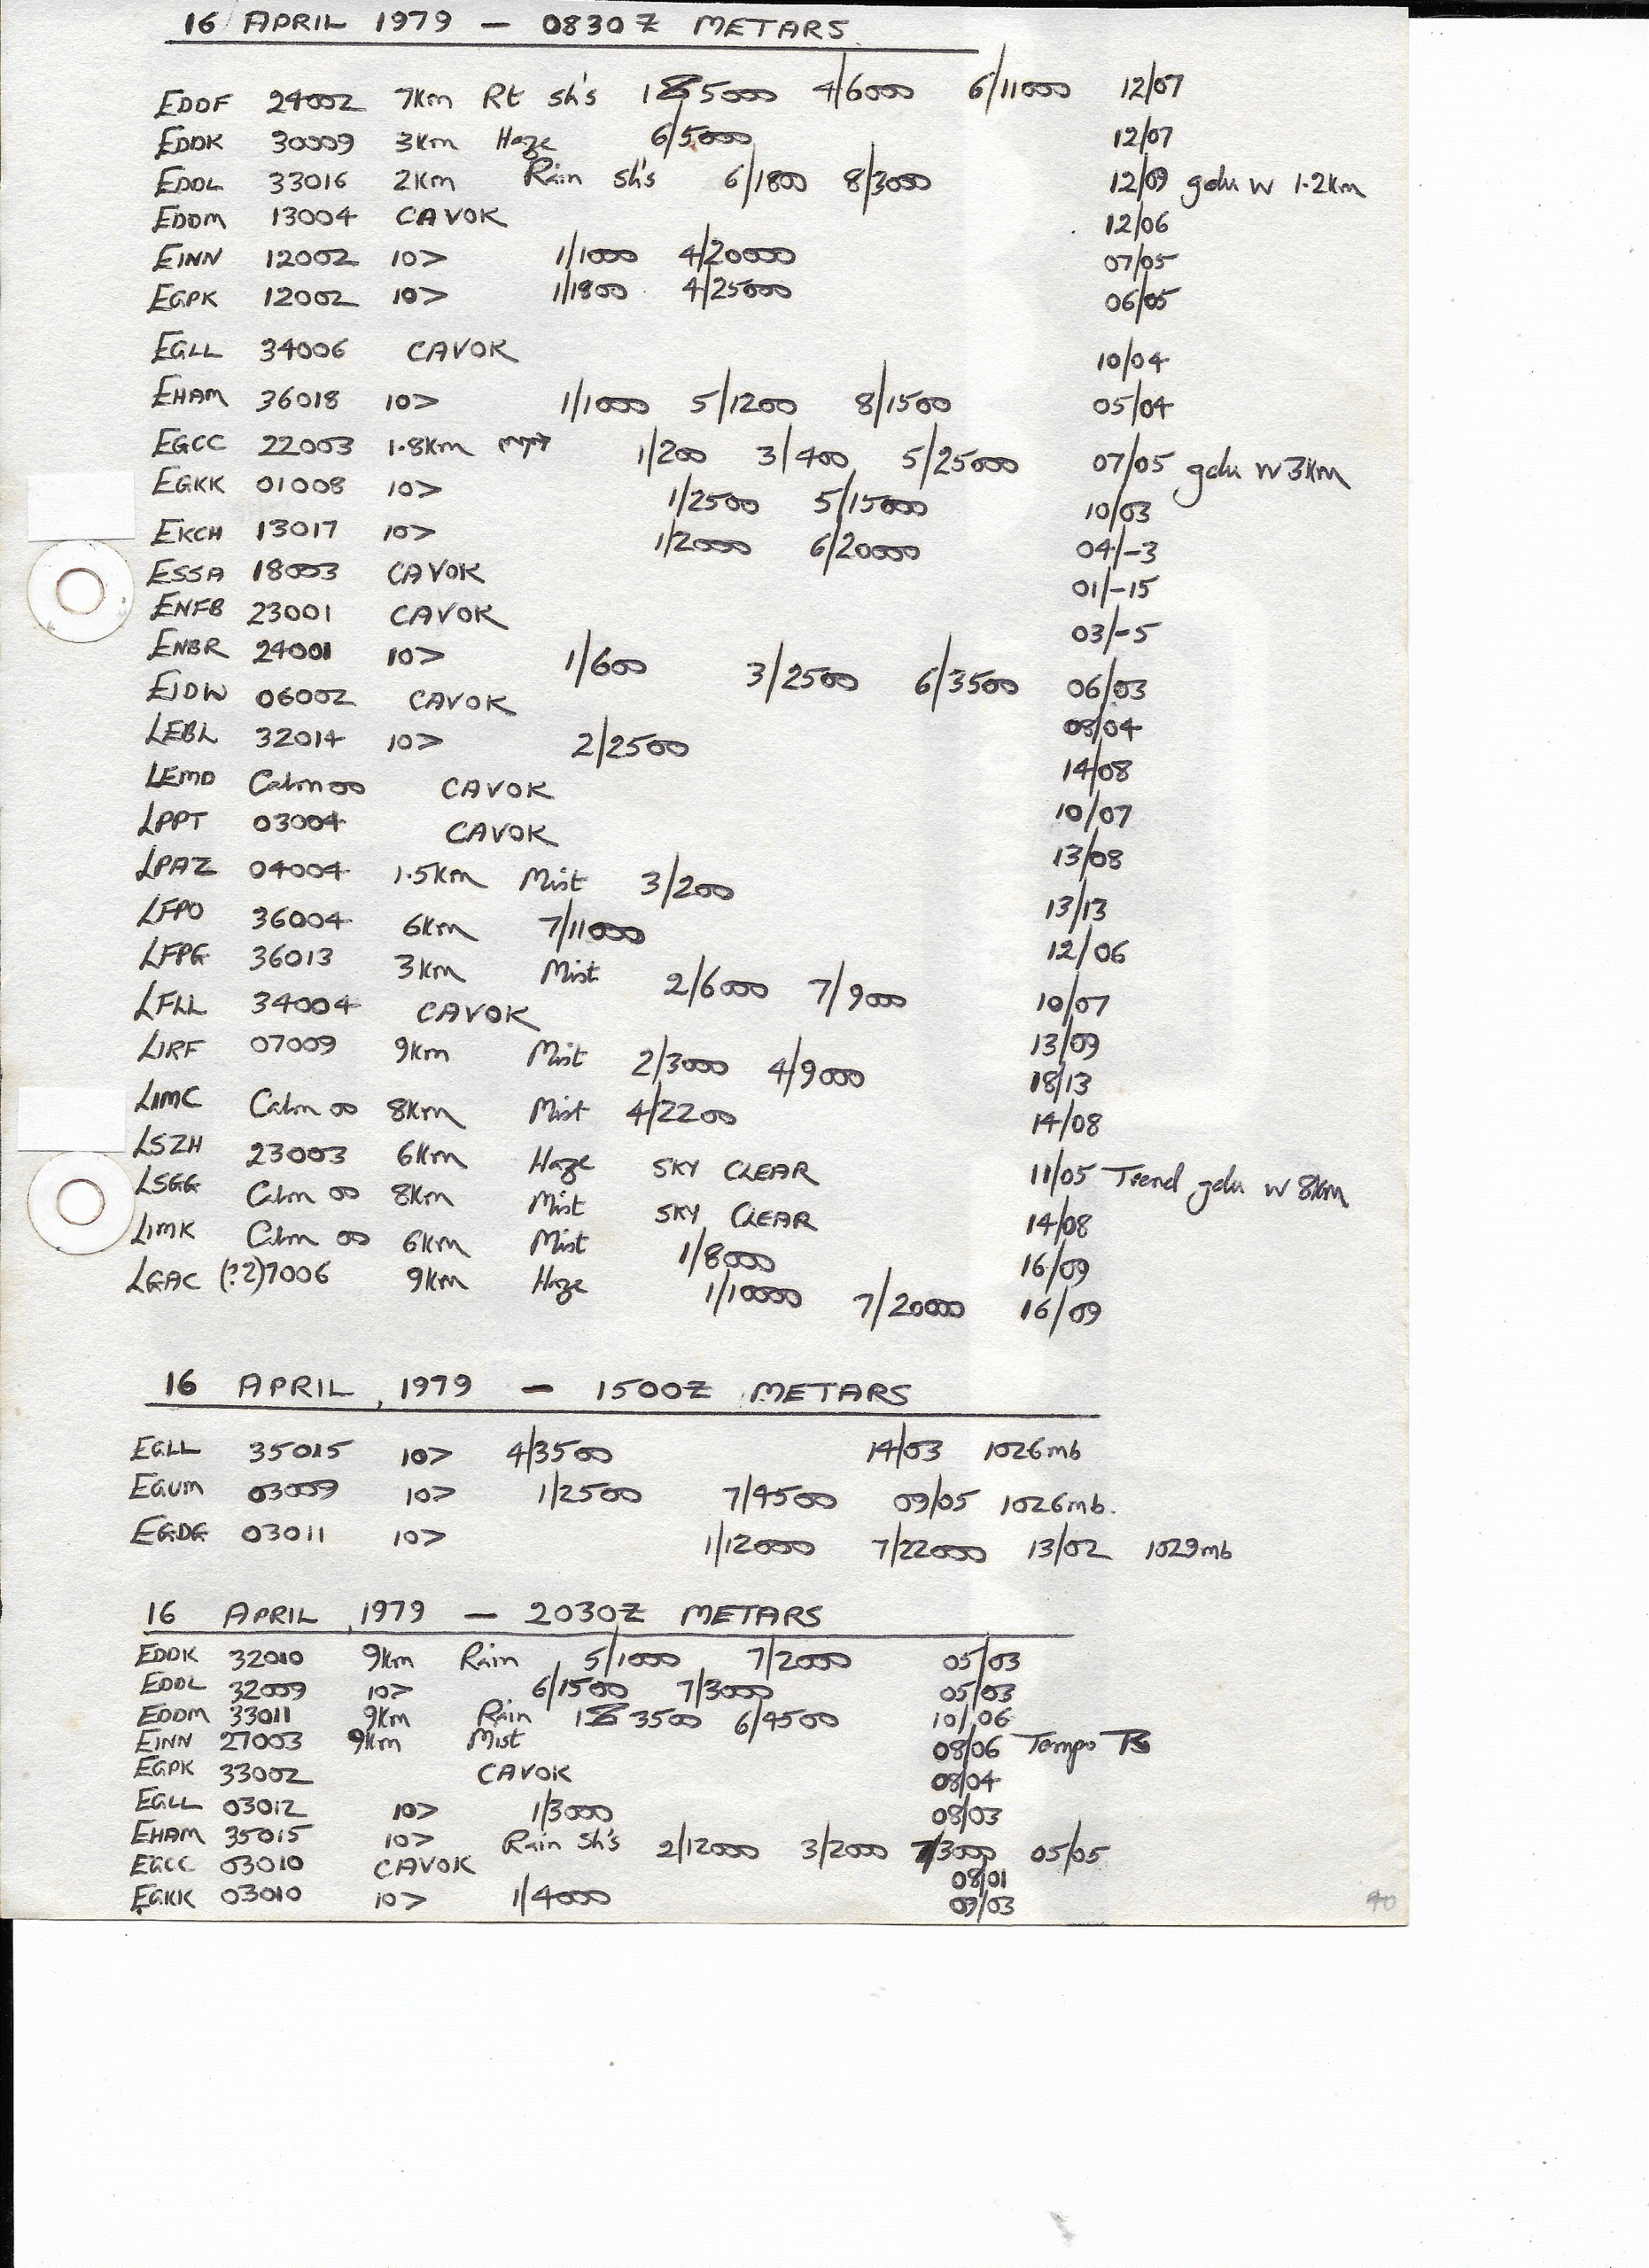 16 APRIL 1979 — 0830Z METARS.
EDDF 24002 7km Rt sh's 5000 4/6000 6/11000 12/07
EDDK 30009 3km Haze 6/5000 12/07
EDDL 33016 2km Rain sh's 6/1800 8/3000 12/09 gdu w 1.2km
EDDM 13004 CAVOK 12/06
EINN 12002 10> 1/1000 4/20000 07/05
EGPK 12002 10> 1/1800 4/25000 06/05
EGLL 34006 CAVOK 10/04
EHAM 36018 10> 1/1000 5/1200 8/1500 05/04
EGCC 22003 1.8km 1/200 3/400 5/25000 07/05 gdu w 3km
EGKK 01008 10> 1/2500 5/15000 10/03
EKCH 13017 10> 1/2000 6/20000 04/-3
ESSA 18003 CAVOK 01/-15
ENFB 23001 CAVOK 03/-5
ENBR 24001 10> 1/600 3/2500 6/3500 06/03
EIDW 06002 CAVOK 08/04
LEBL 32014 10> 2/2500 14/08
LEMD Calm 00 CAVOK 10/07
LPPT 03004 CAVOK 13/08
LPAZ 04004 1.5km Mist 3/200 13/13
LFPO 36004 6km 7/11000 12/06
LFPG 36013 3km Mist 2/6000 7/9000 10/07
LFLL 34004 CAVOK 13/09
LIRF 07009 9km Mist 2/3000 4/9000 18/13
LIMC Calm 00 8km Mist 4/2200 14/08
LSZH 23003 6km Haze SKY CLEAR 11/05 Trend gdu w 8km
LSGG Calm 00 8km Mist SKY CLEAR 14/08
LIMK Calm 00 6km Mist 1/8000 16/09
LGAC (?2)7006 9km Haze 1/10000 7/20000 16/09
16 APRIL 1979 — 1500Z METARS
EGLL 35015 10> 4/3500 14/03 1026mb
EGUM 03009 10> 1/2500 7/4500 09/05 1026mb.
EGDG 03011 10> 1/12000 7/22000 13/02 1029mb
16 APRIL 1979 — 2030Z METARS
EDDK 32010 9km Rain 5/1000 7/2000 05/03
EDDL 32009 10> 6/1500 7/3000 05/03
EDDM 33011 9km Rain 3500 6/4500 10/06
EINN 27003 9km Mist 08/06 Tempo
EGPK 33002 CAVOK 08/04
EGLL 03012 10> 1/3000 08/03
EHAM 35015 10> Rain Sh's 2/12000 3/2000 7/3000 05/05
EGCC 03010 CAVOK 08/01
EGKK 03010 10> 1/4000 09/03
40